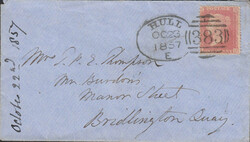 October 22nd 1857
HULL
OC 23
1857
E
383
Mrs T. K. E. Thompson
Mr Burdon's
Manor Street
Bridlington Quay